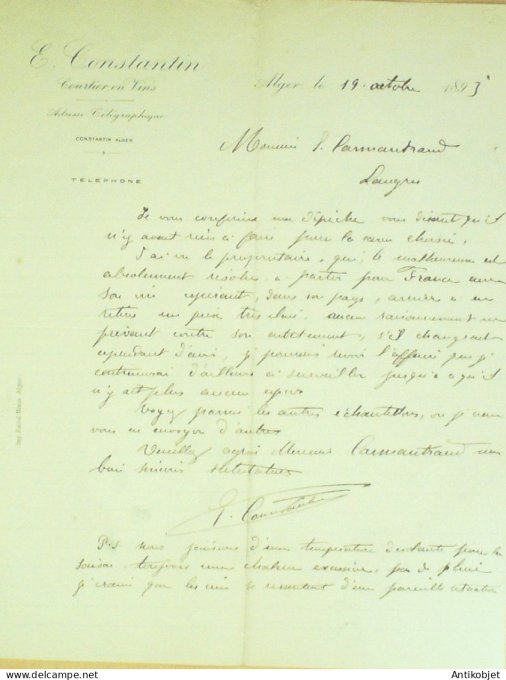 E. Constantin
Courtier en Vins
Adresse Télégraphique
CONSTANTIN ALGER
TÉLÉPHONE
Alger, le 19 octobre 1893
Monsieur Carmantrand
Langres
Je vous confirme ma dépêche vous disant qu'il
n'y avait rien à faire pour la cave choisie,
J'ai vu le propriétaire, qui, le malheureux est
absolument résolu à partir pour France avec
son vin espérant, dans son pays, arriver à en
retirer un prix très élevé. aucun raisonnement ne
prévaut contre son entêtement, s'il changeait
cependant d'avis, je pourrais avoir l'affaire que je
continuerai d'ailleurs à surveiller jusqu'à ce qu'il
n'y ait plus aucun espoir
Voyez parmi les autres échantillons, ou je vais
vous en envoyer d'autres
Veuillez agréer Monsieur Carmantrand mes
bien sincères salutations
E. Constantin
P.S. Nous jouissons d'une température pour la
saison. toujours une chaleur excessive, pas de pluie
je crains que les vins se ressentent d'une pareille
www.antikobjet.com Antikobjet